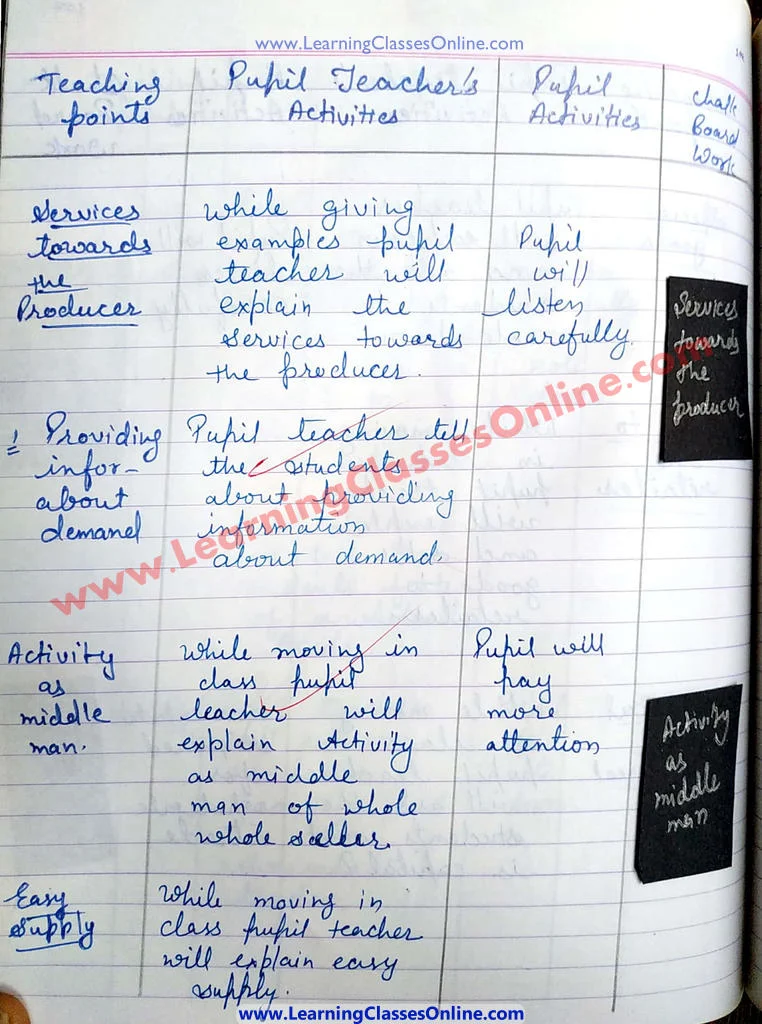 www.LearningClassesOnline.com
Teaching points
Pupil Teacher's Activities
Pupil Activities
Chalk Board Work
Services
towards
the
Producer
while giving
examples pupil
teacher will
explain the
services towards
the producer.
Pupil
will
listen
carefully.
Services
towards
the
producer
1 Providing
infor-
about
demand
Pupil teacher tell
the students
about providing
information
about demand.
www.LearningClassesOnline.com
Activity
as
middle
man.
while moving in
class pupil
teacher will
explain Activity
as middle
man of whole
whole saller.
Pupil will
pay
more
attention
Activity
as
middle
man
Easy
Supply
While moving in
class pupil teacher
will explain easy
supply.
www.LearningClassesOnline.com